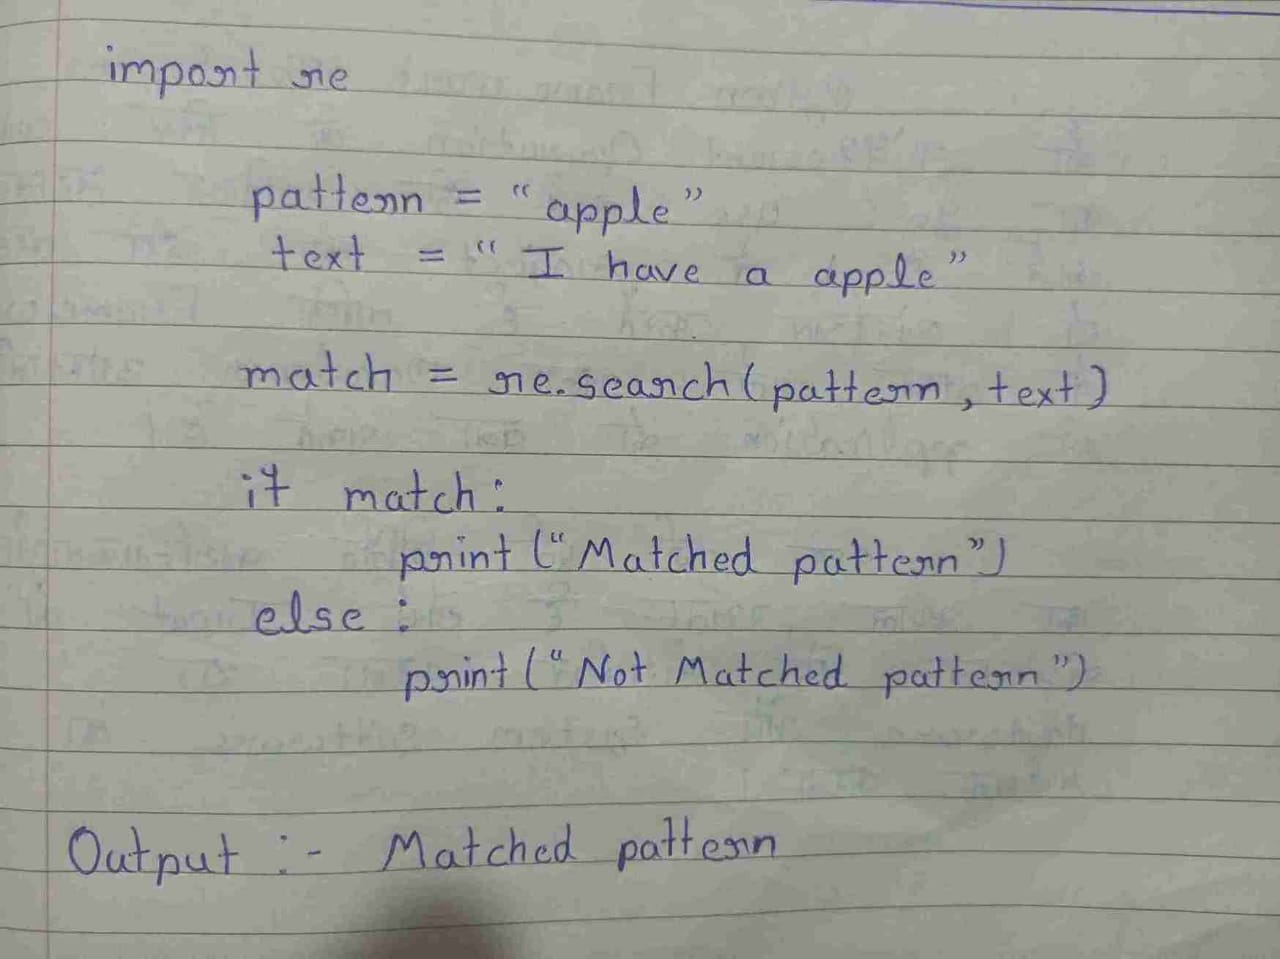 import re
pattern = “apple”
text = “I have a apple”
match = re.search(pattern, text)
if match:
print (“Matched pattern”)
else :
print (“Not Matched pattern”)
Output :- Matched pattern